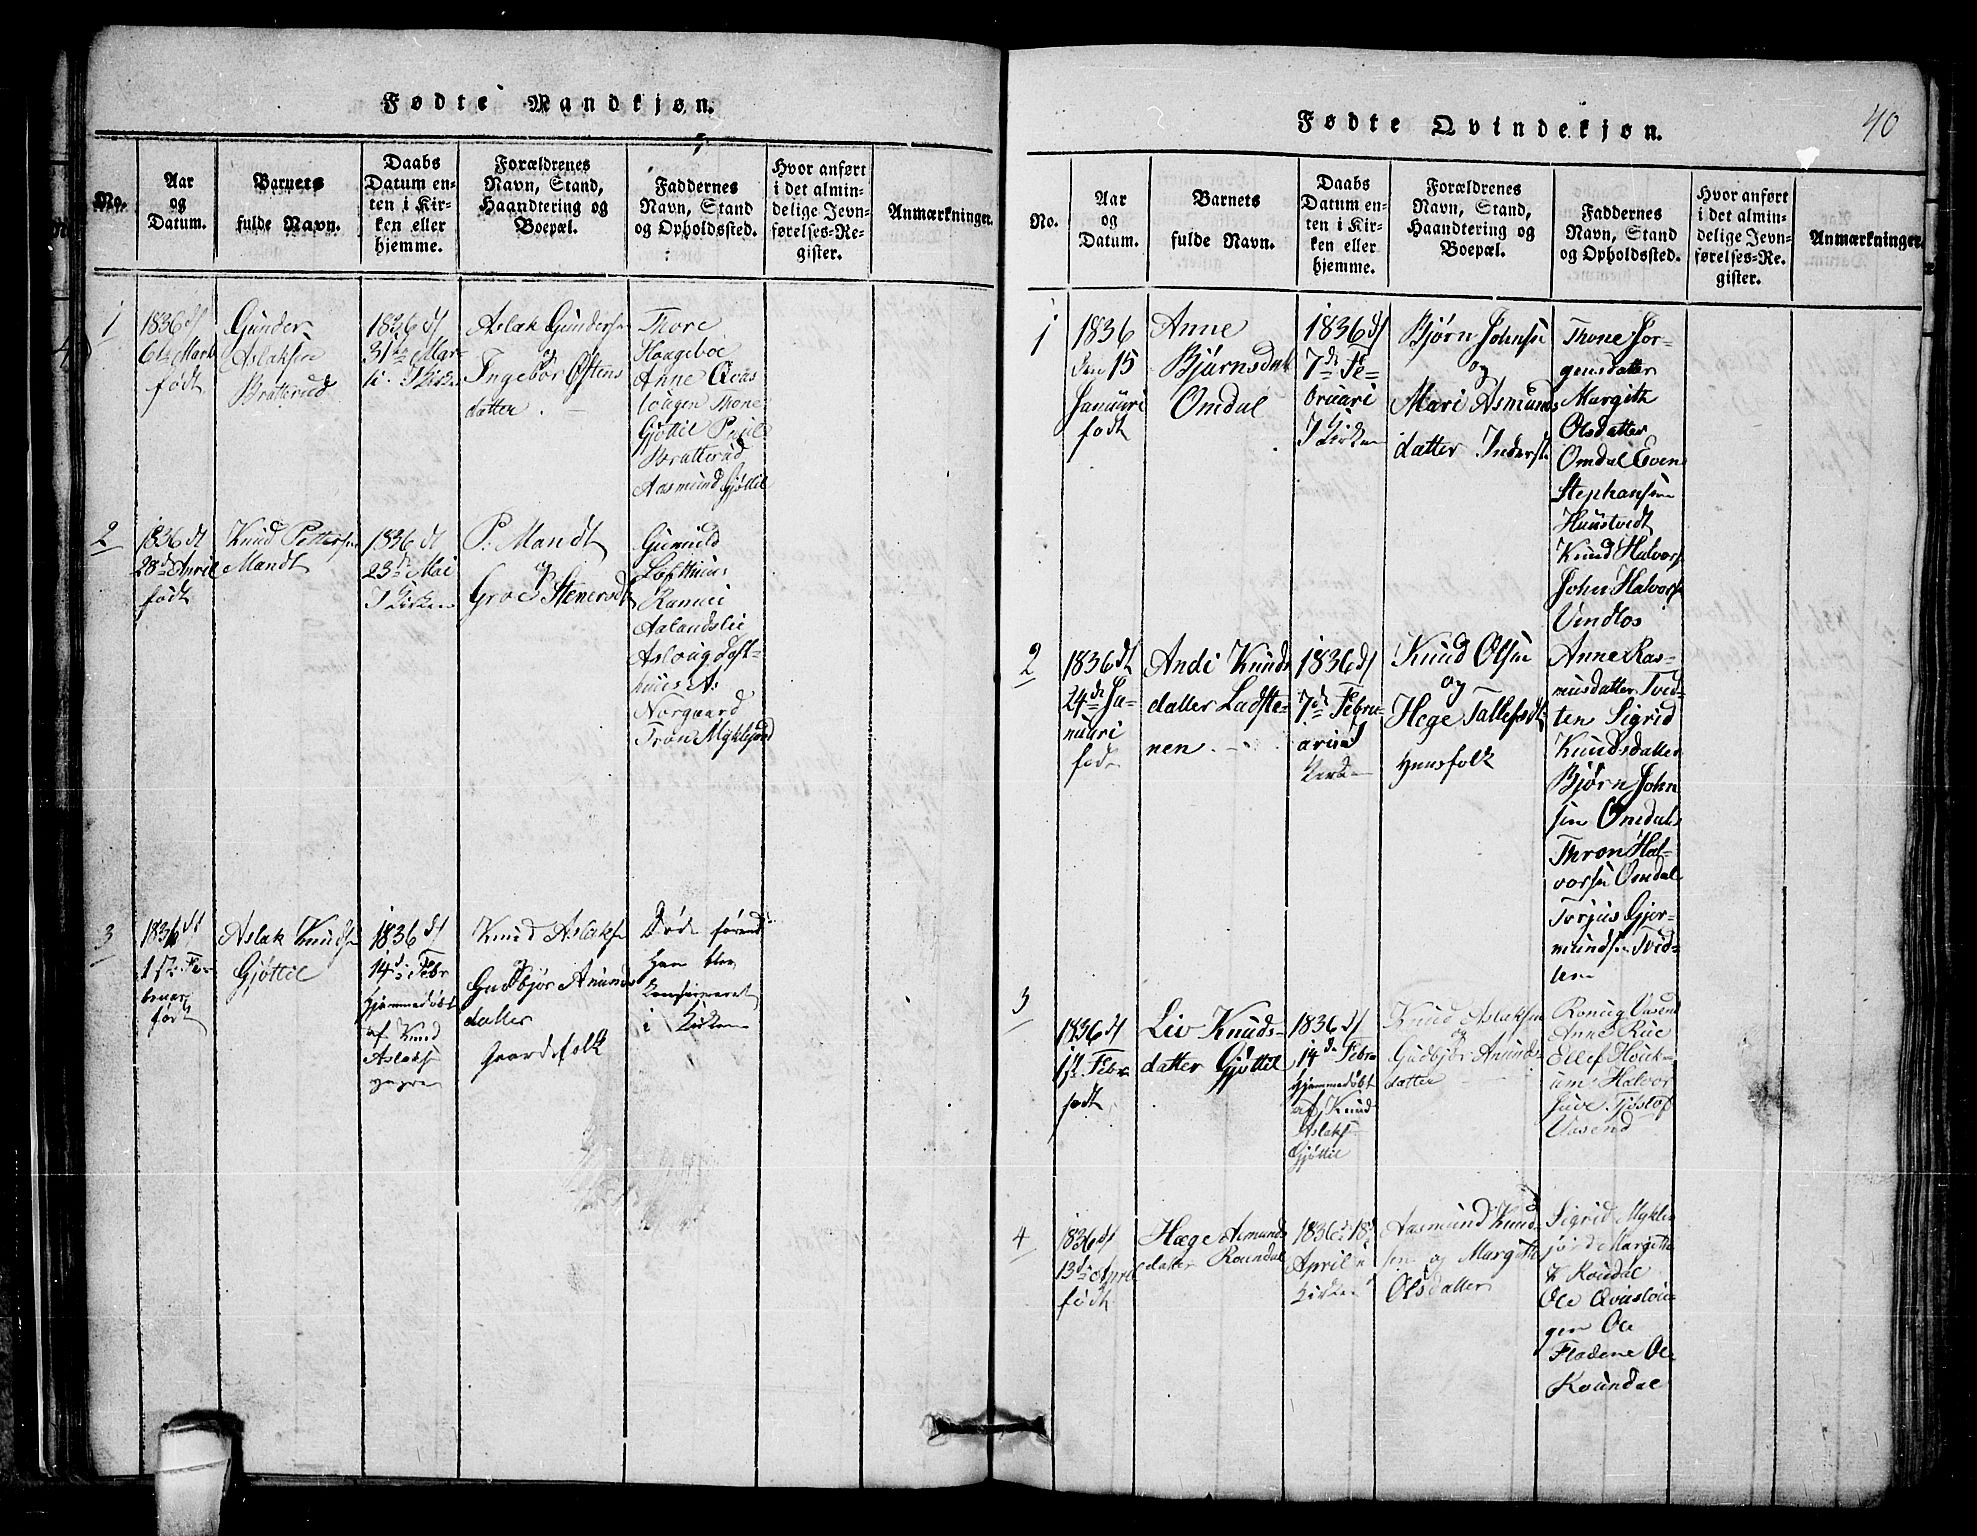 Fødte Mandkjøn.
No.
Aar
og
Datum.
Barnets
fulde Navn.
Daabs
Datum en-
ten i Kir-
ken eller
hjemme.
Forældrenes
Navn, Stand,
Haandtering og
Boepæl.
Faddernes
Navn, Stand
og Opholdssted.
Hvor anført
i det almin-
delige Jevn-
førelses-Re-
gister.
Anmærkninger.
1
1836 d
6te Marti
født
Gunder
Aslaksen
Bratterud
1836 d
31te Mar-
ti. I Kirken
Aslak Gunders
og
Ingebor Østens
datter
Thore
Haugeboe
Anne Qvas
lougen Thone
Gjøttil
Bratterud
Aasmund Gjøttil
2
1836 d
28de April
født
Knud Petterse
Mandt
1836 d
23de Mai
I Kirken
P. Mandt
og
Groe Stenersdt
Gunuld
Lofthuus
Ranuei
Aalandslie
Aslaug Loft-
huus A:
Norgaard
Tron Myklejord
3
1836 d
1ste Fe-
bruar
født
Aslak Knudse
Gjøttil
1836 d
14de Febr
Hjemmedøbt
af Knud
Aslaks
Knud Aslakse
og
Gudbjør Anunds
datter
Gaardefolk
Døde førend
Han blev
Confirmeret
i Kirken
Fødte Qvindekjøn.
40
No.
Aar
og
Datum.
Barnets
fulde Navn.
Daabs
Datum en-
ten i Kir-
ken eller
hjemme.
Forældrenes
Navn, Stand,
Haandtering og
Boepæl.
Faddernes
Navn, Stand
og Opholdssted.
Hvor anført
i det almin-
delige Jevn-
førelses-Re-
gister.
Anmærkninger.
1
1836
den 15
Januari
født
Anne
Bjørnsdat
Omdal
1836 d
7de Fe
bruari
I Kirken
Bjørn Johnse
og
Mari Asmunds
datter Inderst
Thone Jor-
gensdatter
Margith
Olsdatter
Omdal Even
Stephansen
Huustvedt
Knud Halvors
John Halvors
Vindlos
2
1836 dt
24de Ja-
nuari
fød
Andi Knuds
datter Ladste-
nen
1836 d
7de Febru-
ari i
Kirken
Knud Olsen
og
Hege Tallefsdt
Huusfolk
Anne Ras-
musdatter Tved-
ten Sigrid
Knudsdatter
Bjørn John
sen Omdal
Thron Hal-
vorsen Omdal
Torjus Gjer-
mundsen Tved-
ten
3
1836 d
1st Febr
født
Liv Knuds-
datter Gjøttil
1836 d
14de Febr
Hjemmedøbt
af Knud
Aslaks
Gjøttil
Knud Aslaksen
og
Gudbjør Anunds
datter
Ronug Vasend
Anne Rue
Ellef Houk-
um Halvor
Juve Tjøstof
Vasend
4
1836 d
13de April
født
Hæge Asmunds
datter Roundal
1836 d 18de
April i
Kirken
Aasmund Knud
sen og Margith
Olsdatter
Sigrid Myklen
jord Margithe
K Roudal
Ole Qvaslou-
gen Ole
Fladene Ole
Roundal